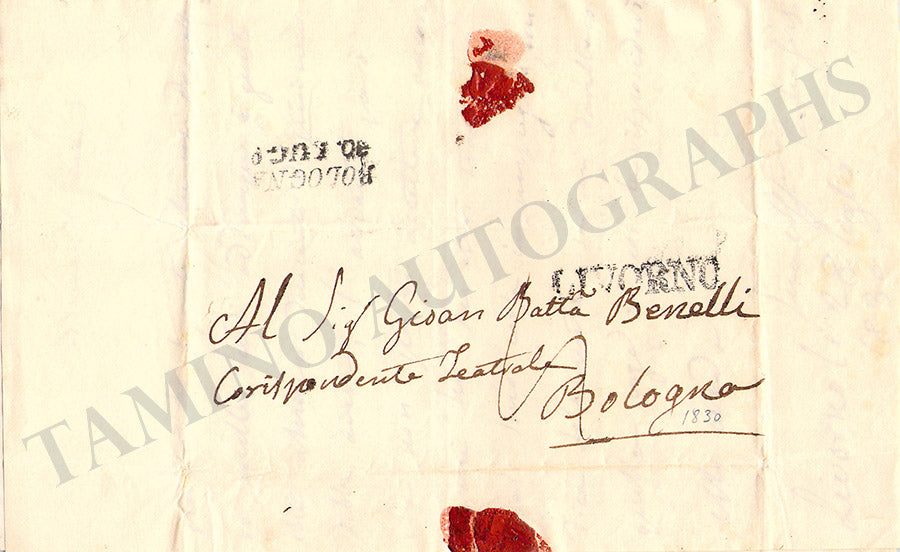 BOLOGNA
30. LUG.º
LIVORNO
Al Sigr Giovan Batta Benelli
Corispondente Teatrale
Bologna
1830
TAMINO AUTOGRAPHS